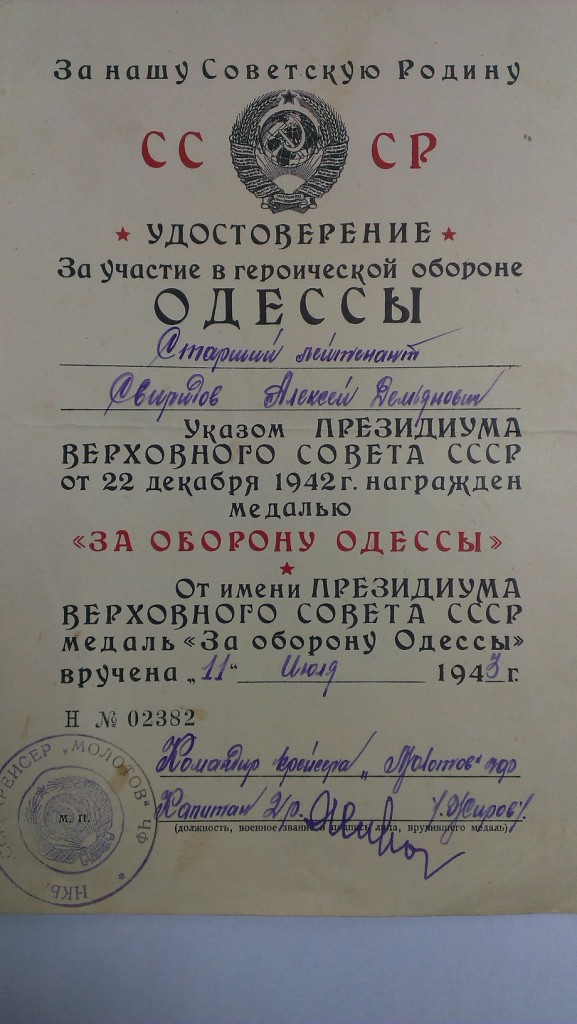 За нашу Советскую Родину
СС СР
УДОСТОВЕРЕНИЕ
За участие в героической обороне
ОДЕССЫ
Старший лейтенант
Свиридов Алексей Демьянович
Указом ПРЕЗИДИУМА
ВЕРХОВНОГО СОВЕТА СССР
от 22 декабря 1942 г. награжден
медалью
«ЗА ОБОРОНУ ОДЕССЫ»
От имени ПРЕЗИДИУМА
ВЕРХОВНОГО СОВЕТА СССР
медаль «За оборону Одессы»
вручена „11“ Июля 1943 г.
Н № 02382
Командир крейсера „Молотов"
Капитан 2 р. /Жиров/.
(должность, военное звание подпись лица, вручившего медаль)
КРЕЙСЕР „МОЛОТОВ" ЧФ
М. П.
НКВ